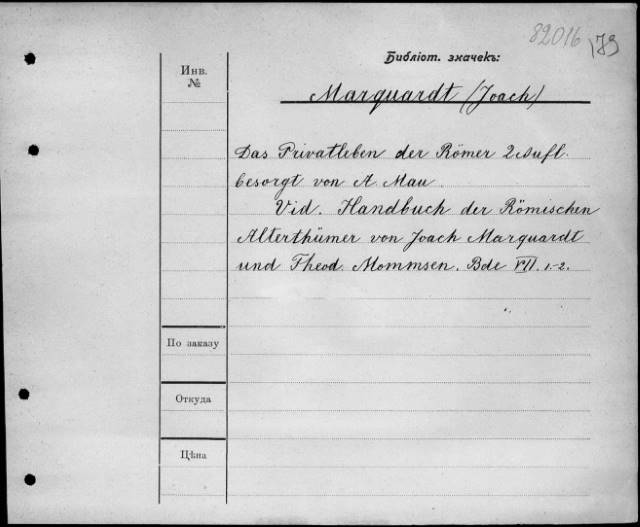 82016 179
Библіот. значекъ:
Инв.
№
Marquardt (Joach)
Das Privatleben der Römer 2 Aufl.
besorgt von A. Mau.
Vid. Handbuch der Römischen
Alterthümer von Joach Marquardt
und Theod. Mommsen. Bde VII. 1-2.
По заказу
Откуда
Цѣна